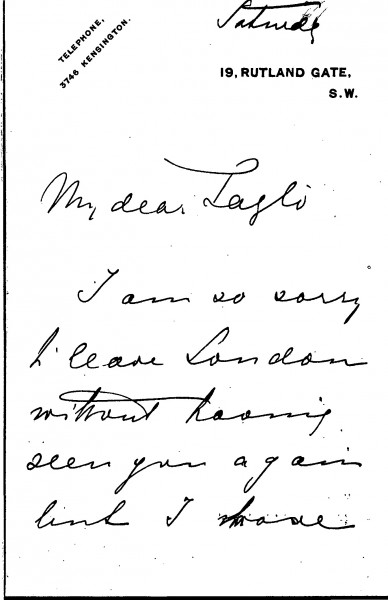 TELEPHONE,
3746 KENSINGTON.
Saturday
19, RUTLAND GATE,
S.W.
My dear Taglò
I am so sorry
to leave London
without having
seen you again
but I have